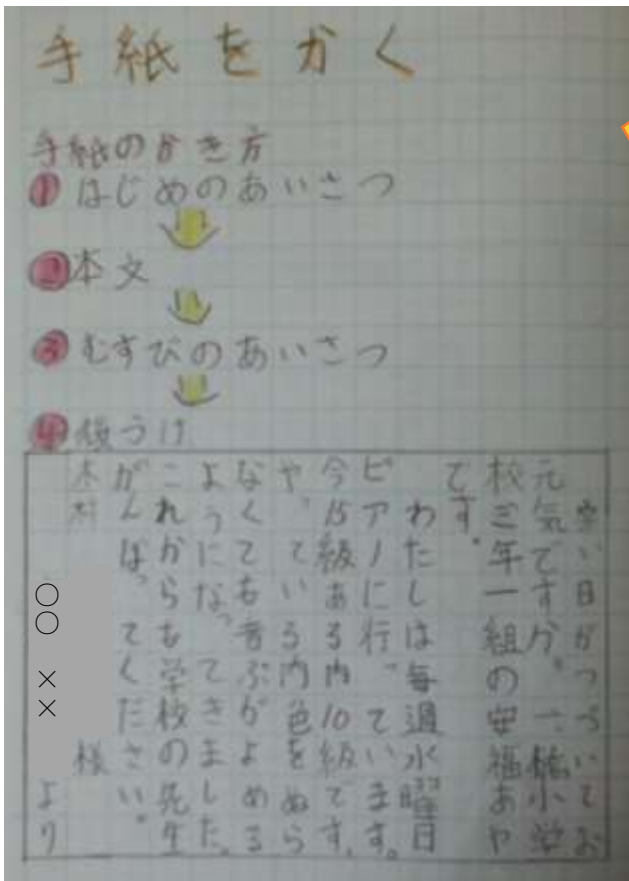 手紙をかく
手紙のかき方
①はじめのあいさつ
②本文
③むすびのあいさつ
④後づけ
寒い日がつづいてお
元気ですか。一小学
校三年一組の安福あや
です。
わたしは毎週水曜日
ピアノに行っています。
今15級ある内10級です。
や、ている内色をぬら
なくても音ぷがよめる
ようになってきました。
これからも学校の先生
がんばってくたださい。
木村
様
○○××
より